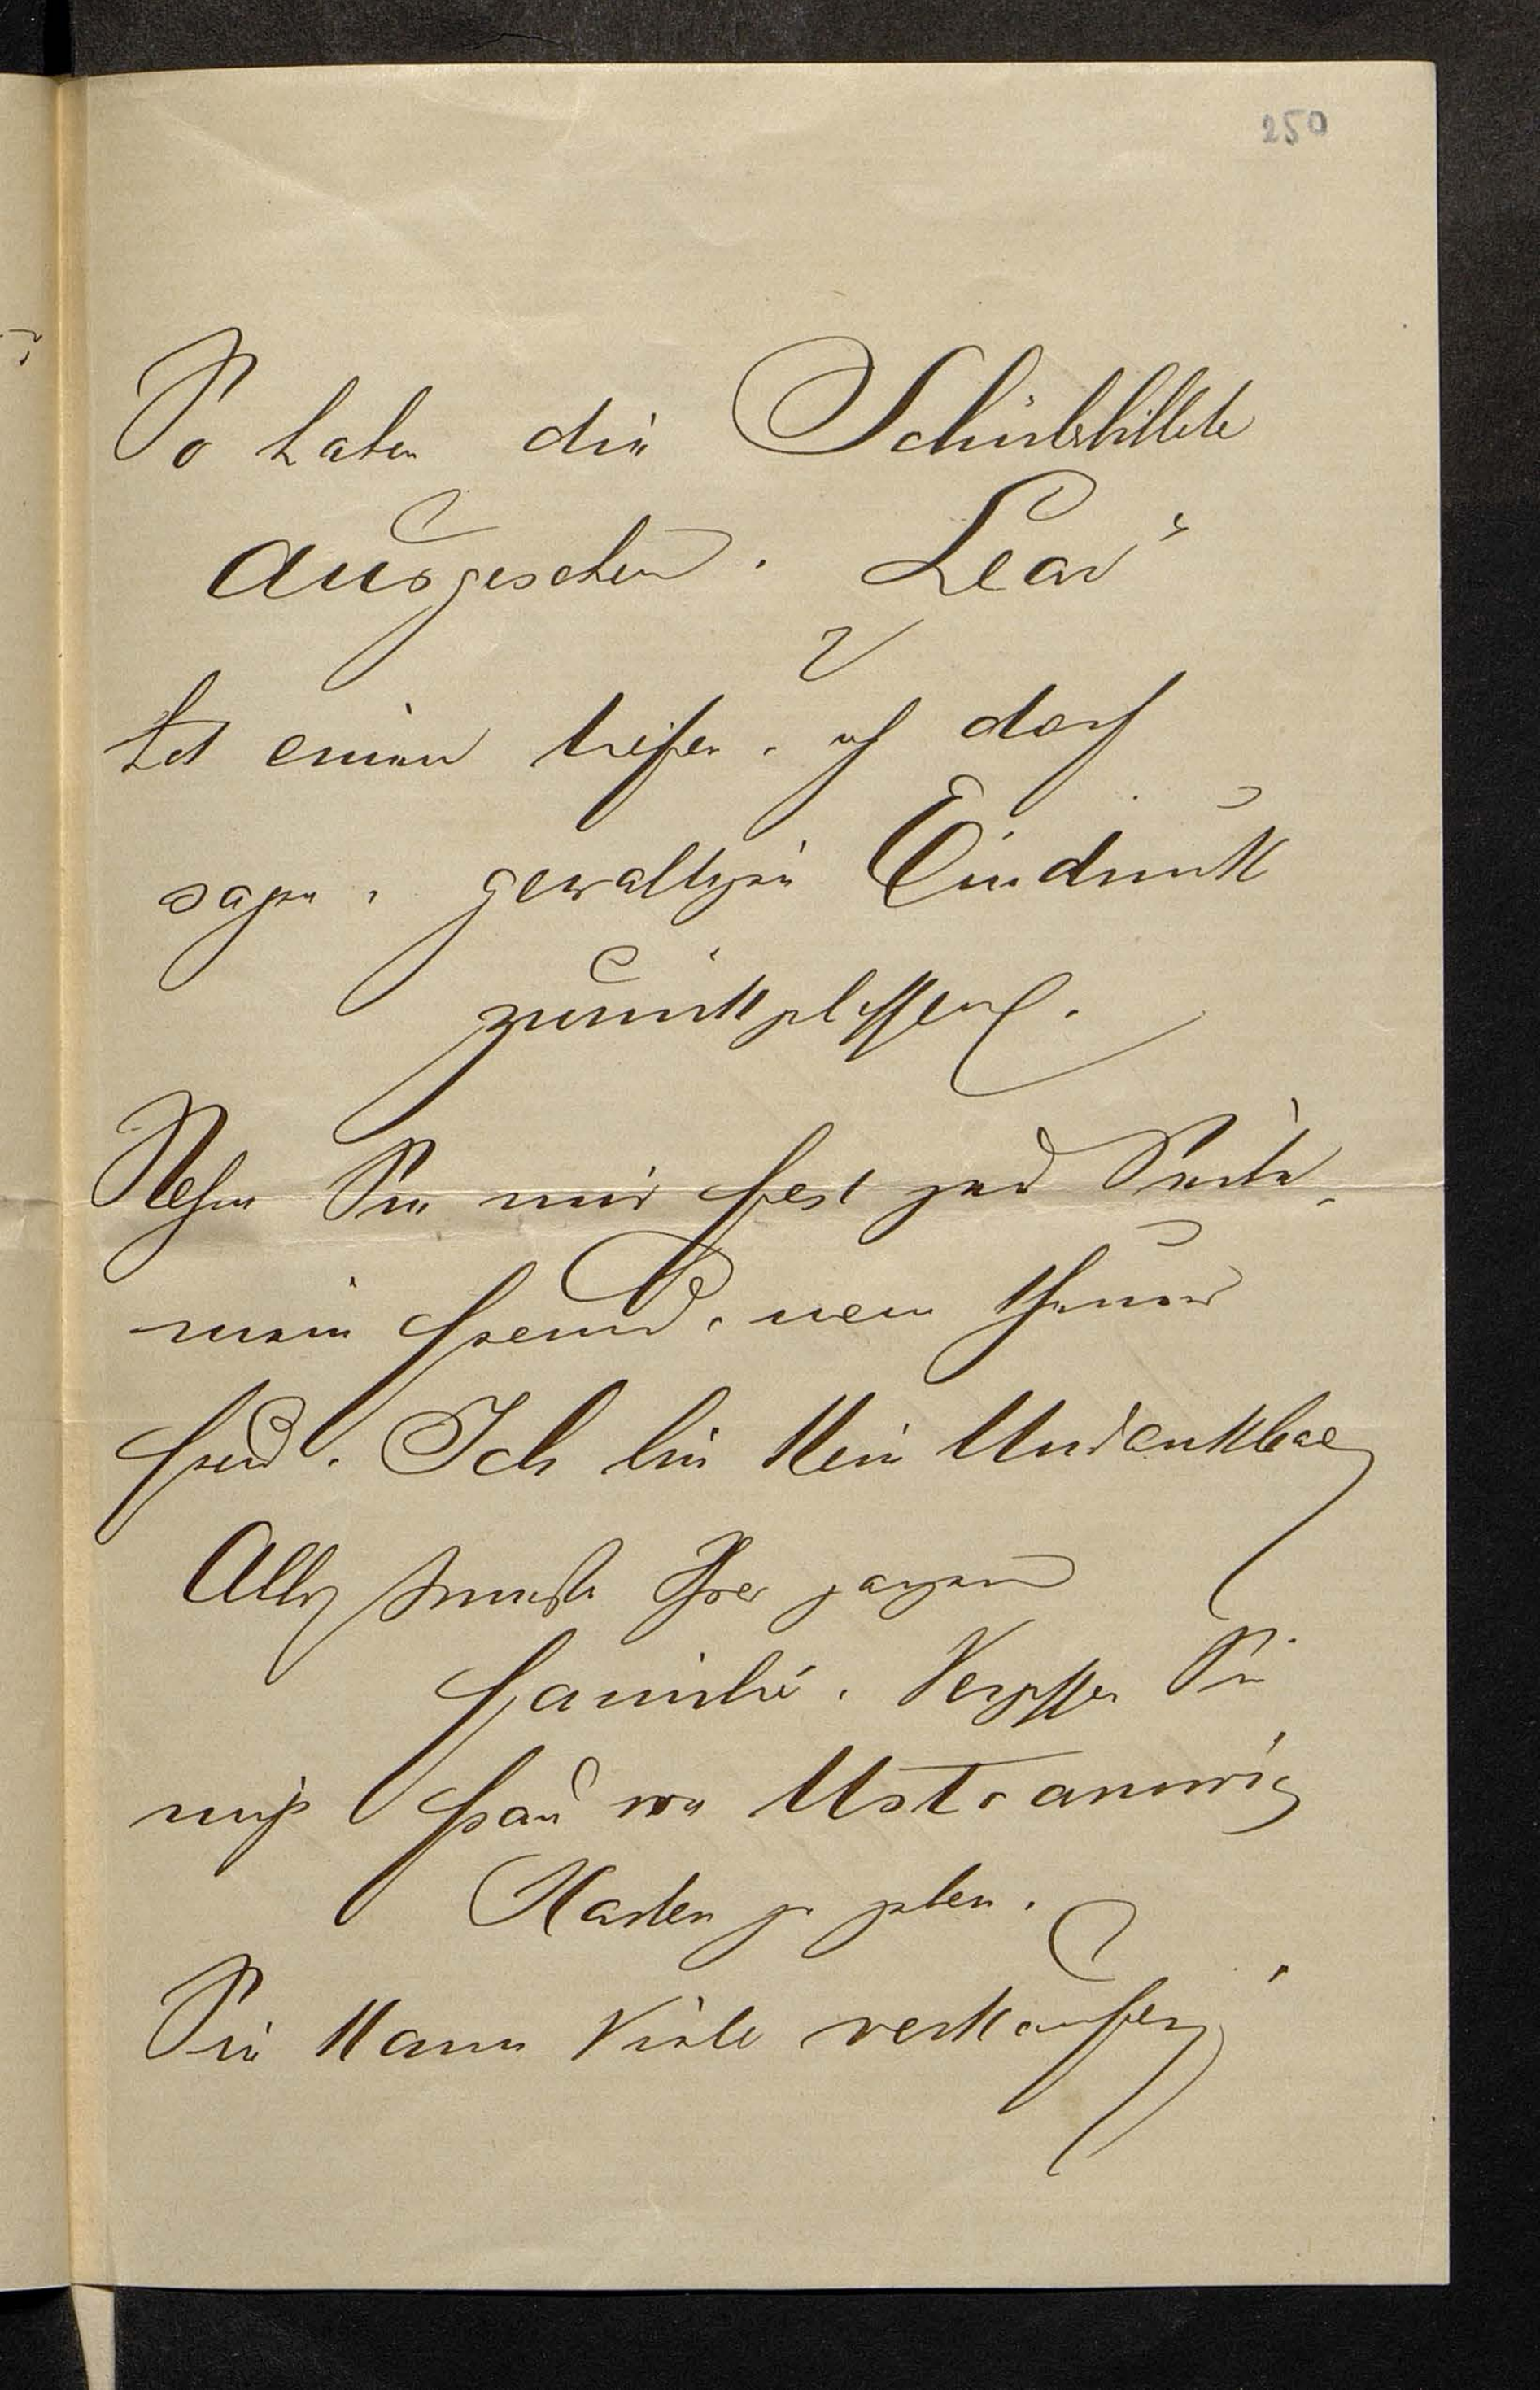 250
So haben die Schülerbillete
ausgesehen. Lear
hat einen tiefen, ich darf
sagen, gewaltigen Eindruck
zurückgelassen.
Stehen Sie mir fest zur Seite,
mein Freund, mein theurer
Freund. Ich bin kein Undankbarer
Alles Innigste Ihrer ganzen
Familie. Vergessen Sie
nicht Frau von
Karten zu geben.
Sie kann Viele verkaufen